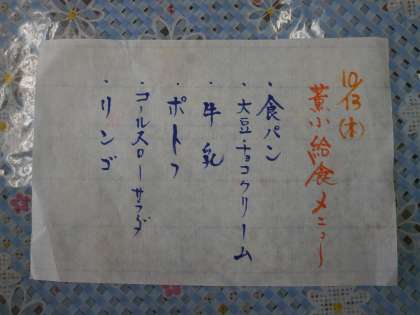 10/13(木)
薫小給食メニュー
・食パン
・大豆チョコクリーム
・牛乳
・ポトフ
・コールスローサラダ
・リンゴ